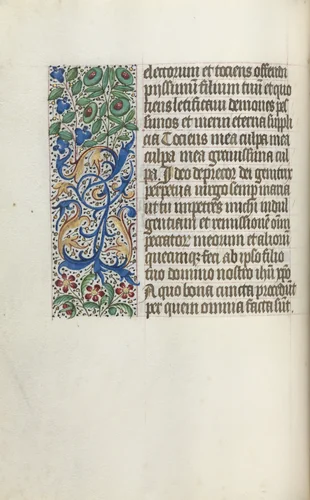 electorum et tociens offendi
pijssimum filium tuũ et quo
tiens letificaui demones pes
simos et merui eterna suppli
cia Tociens mea culpa mea
culpa mea grauissima cul
pa Ideo deprecor dei genitrix
perpetua uirgo semp maria
ut tu impetres michi indul
gentiam et remissionẽ oĩm
peccatorum meorum et aliorum
que feci ab ipso filio
tuo domino nostro ihũ xpõ
A quo bona cuncta procedũt
per quem omnia facta sũt